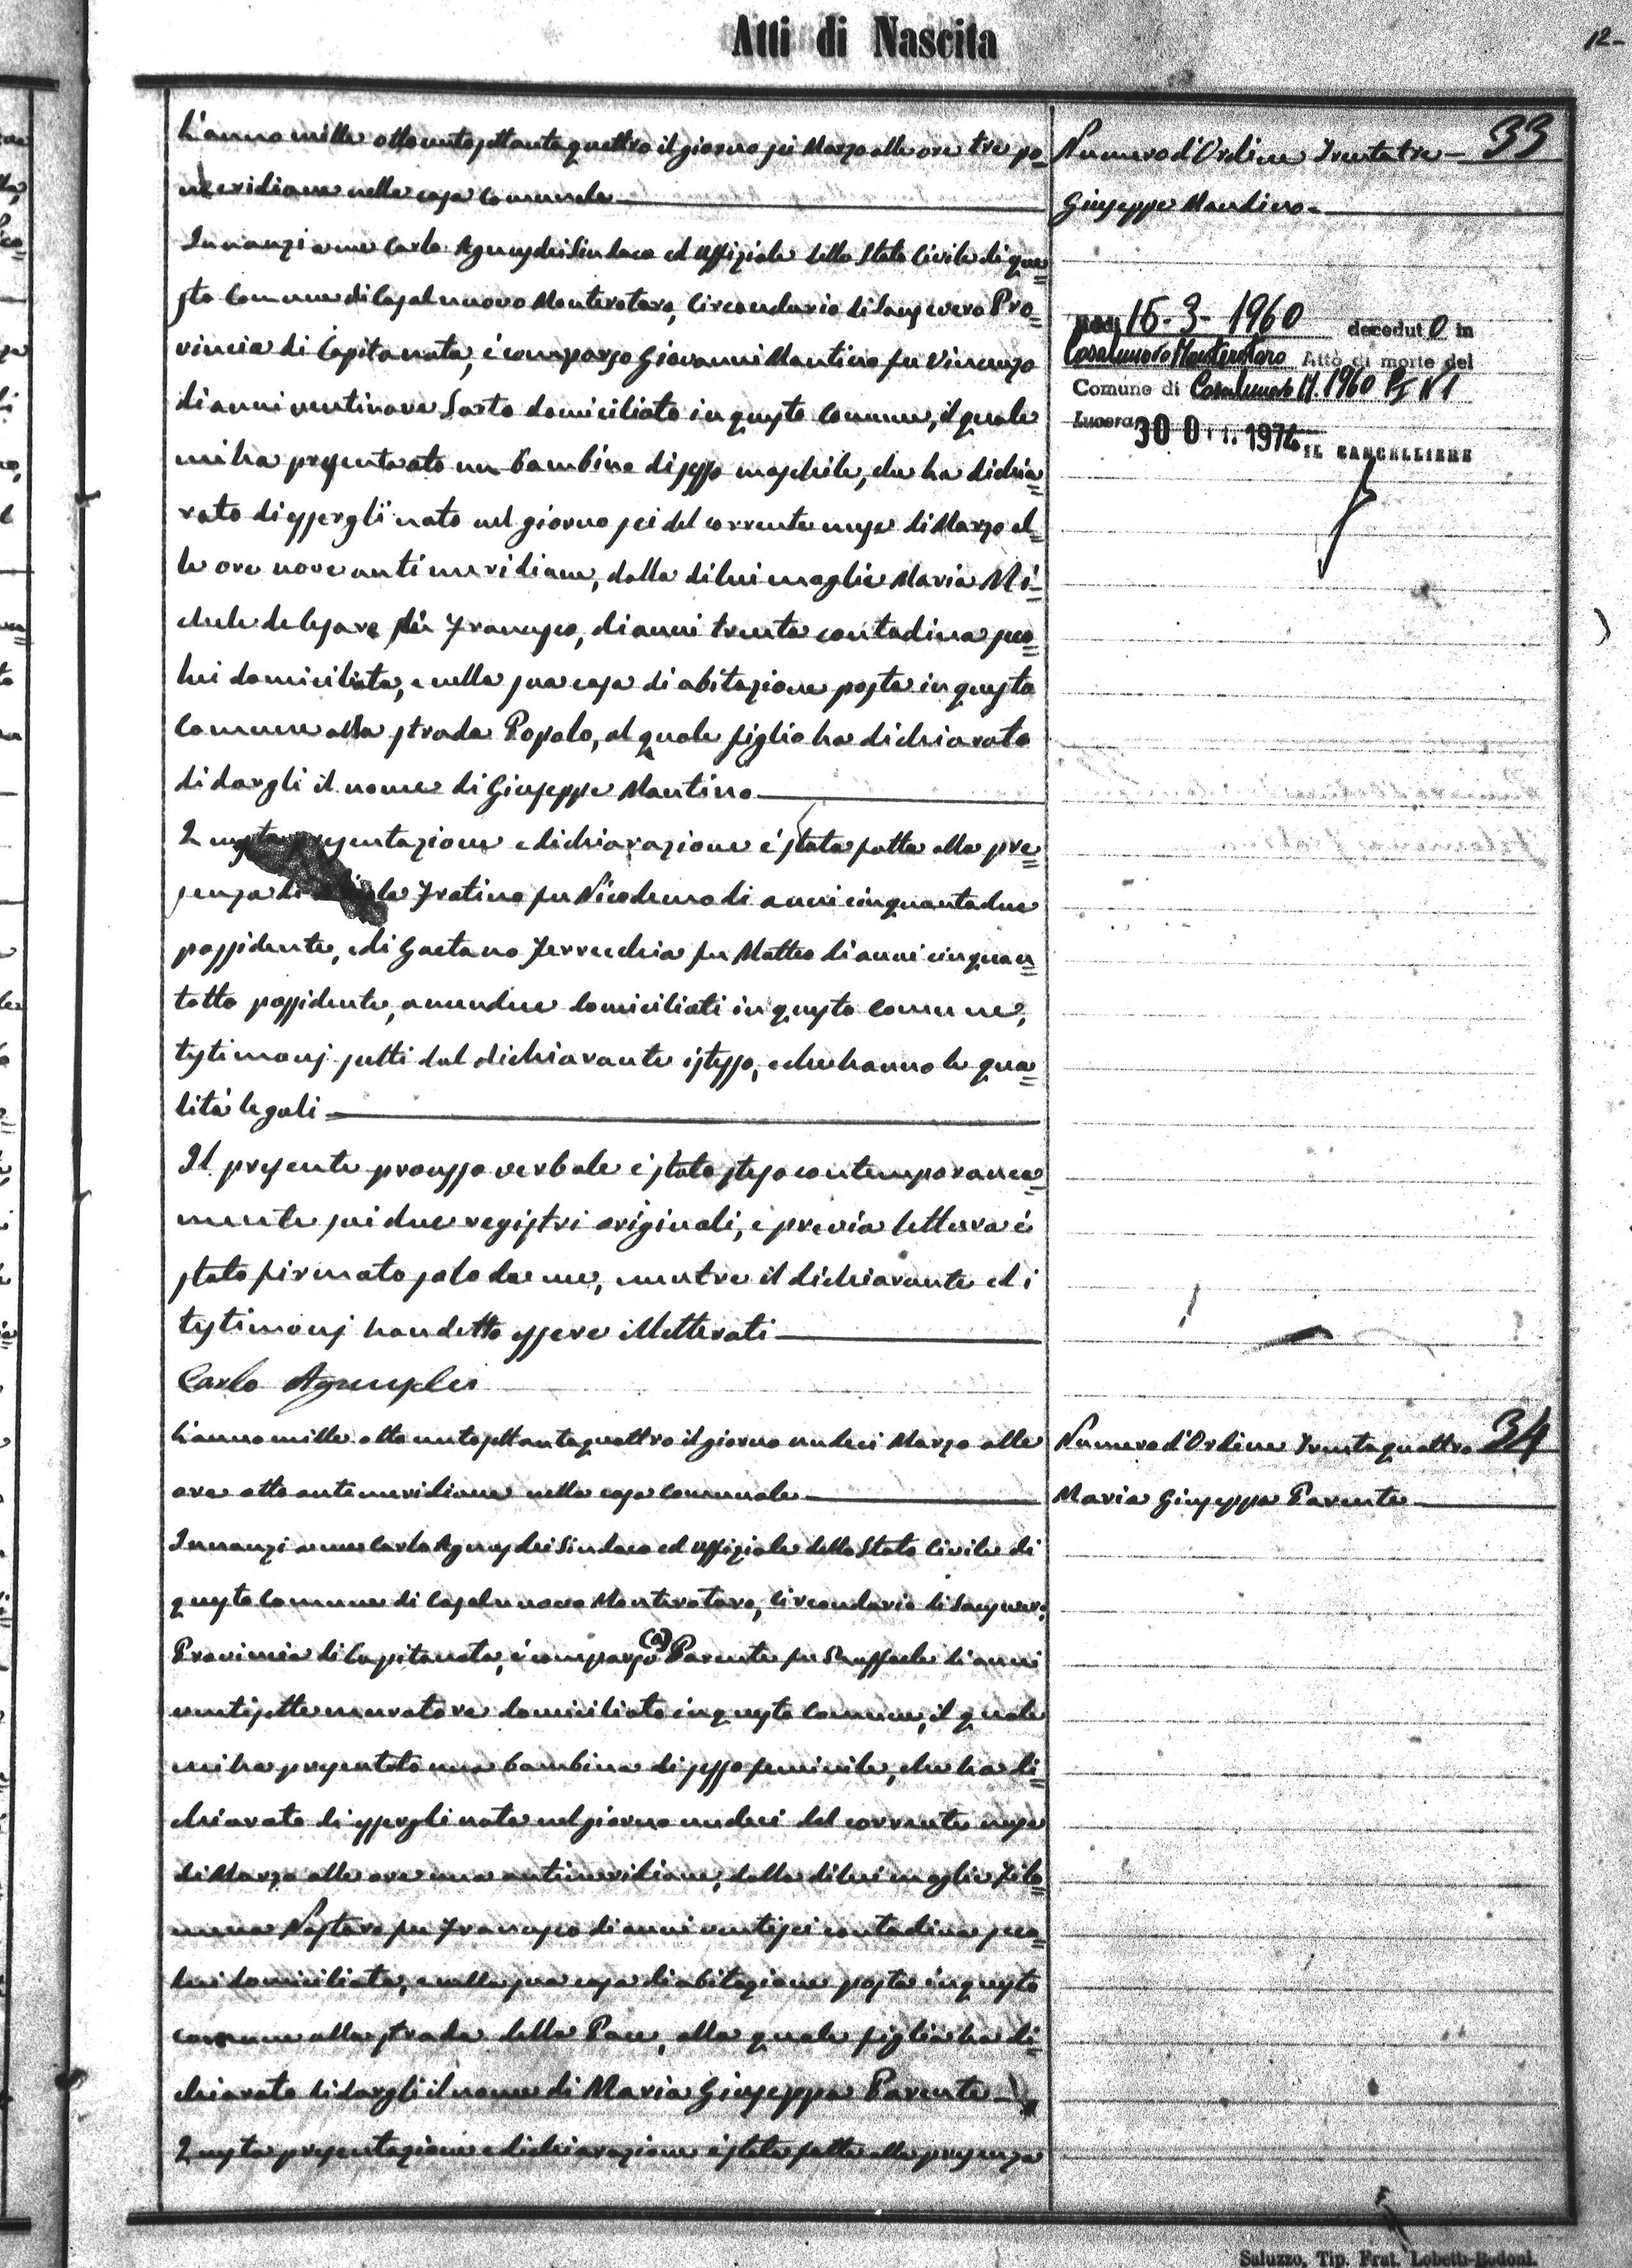 Atti di Nascita
12-
L'anno mille ottocento settantaquattro il giorno sei Marzo alle ore tre po=
meridiane nella casa Comunale
Innanzi a me Carlo Agnusdei Sindaco ed Uffiziale dello Stato Civile di que=
sto Comune di Casalnuovo Monterotaro, Circondario di Sansevero Pro=
vincia di Capitanata, è comparso Giovanni Mantino fu Vincenzo
di anni ventinove Sarto domiciliato in questo Comune, il quale
mi ha presentato un bambino di sesso maschile, che ha dichia=
rato di essergli nato nel giorno sei del corrente mese di Marzo al=
le ore nove antimeridiane, dalla di lui moglie Maria Mi=
chele de Cesare di Francesco, di anni trenta contadina seco=
lui domiciliata, e nella sua casa di abitazione posta in questo
Comune alla strada Popolo, al quale figlio ha dichiarato
di dargli il nome di Giuseppe Mantino
Questa presentazione e dichiarazione è stata fatta alla pre=
senza di Fratino fu Nicodemo di anni cinquantadue
possidente, e di Gaetano Ferrecchia fu Matteo di anni cinquan=
totto possidente, amendue domiciliati in questo Comune,
testimonj scelti dal dichiarante istesso, e che hanno le qua=
lità legali
Il presente processo verbale è stato steso contemporanea=
mente sui due registri originali, e previa lettura è
stato firmato solo da me, mentre il dichiarante ed i
testimonj han detto essere illetterati
Carlo Agnusdei
L'anno mille ottocentosettantaquattro il giorno undeci Marzo alle
ore otto antimeridiane nella casa Comunale
Innanzi a me Carlo Agnusdei Sindaco ed Uffiziale dello Stato Civile di
questo Comune di Casalnuovo Monterotaro, Circondario di Sansevero,
Provincia di Capitanata, è comparso (a) Parente fu Raffaele di anni
ventisette muratore domiciliato in questo Comune, il quale
mi ha presentato una bambina di sesso feminile, che ha di=
chiarato di essergli nata nel giorno undeci del corrente mese
di Marzo alle ore una antimeridiane, dalla di lui moglie Filo=
mena Nastaro fu Francesco di anni ventisei contadina seco=
lui domiciliata, e nella sua casa di abitazione posta in questo
comune alla strada della Pace, alla quale figlia ha di=
chiarato di dargli il nome di Maria Giuseppa Parente
Questa presentazione e dichiarazione è stata fatta alla presenza
Numero d'Ordine Trentatre 33
Giuseppe Mantino
Addì 15-3-1960 decedut o in
Casalnuovo Monterotaro Atto di morte del
Comune di Casalnuovo M. 1960 PI N 1
Lucera, 30 1974 IL CANCELLIERE
Numero d'Ordine Trentaquattro 34
Maria Giuseppa Parente
Saluzzo, Tip. Frat. Lobetti-Bodoni.